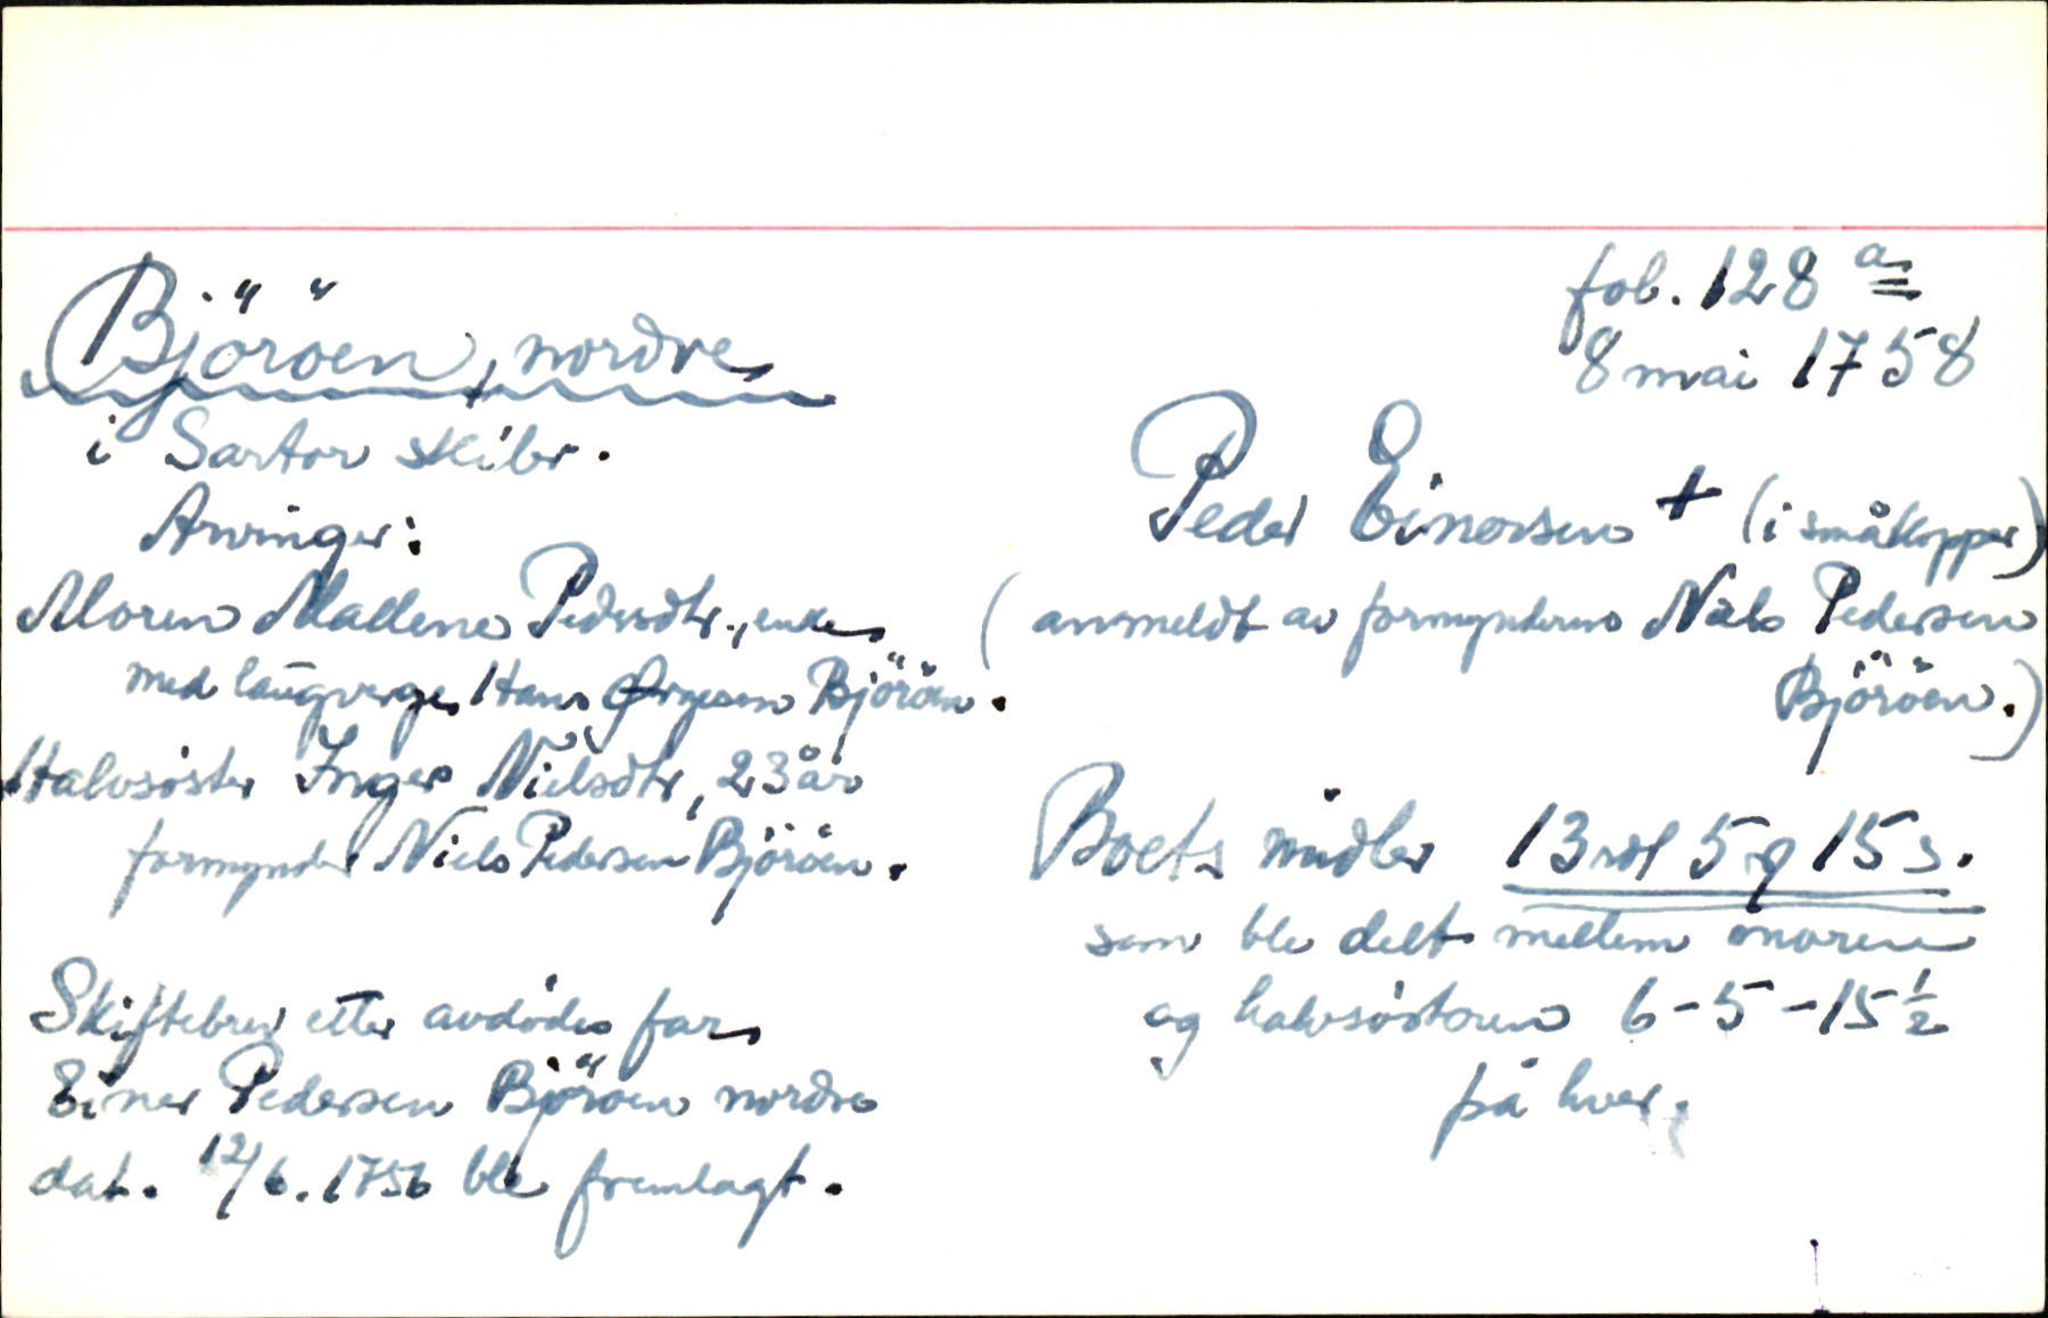 Björöen, nordre
i Sartor skibr.
Arvinger:
Moren Mallene Pedersdtr., enke,
med laugverge Hans Ørjesen Björöen.
Halvsöster Inger Nielsdtr, 23 år
formynder Niels Pedersen Björöen.
Skiftebrev etter avdödes far
Einer Pedersen Björöen nordre
dat. 12/6. 1756 ble fremlagt.
fol. 128 a
8 mai 1758
Peder Einersen + (i småkopper)
(anmeldt av formynderen Niels Pedersen
Björöen.)
Boets midler 13 rdl 5 q 15 s.
som ble delt mellem moren
og halvsösteren 6 - 5 - 15 1/2
på hver.